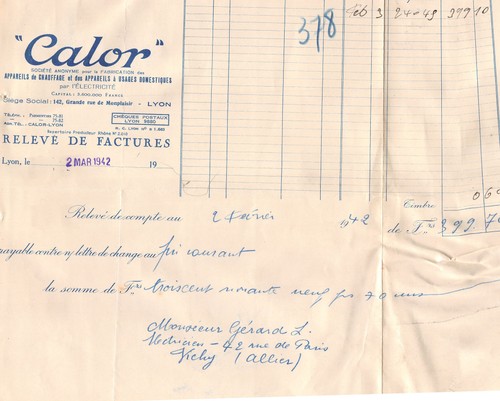 "Calor"
SOCIÉTÉ ANONYME pour la FABRICATION des
APPAREILS de CHAUFFAGE et des APPAREILS à USAGES DOMESTIQUES
par l'ÉLECTRICITÉ
CAPITAL: 3.500.000 FRANCS
Siège Social: 142, Grande rue de Monplaisir - LYON
TÉLÉPH.: PARMENTIER 75-81
75-82
ADR. TÉL.: CALOR-LYON
CHÈQUES POSTAUX
LYON
R. C. LYON
Répertoire Producteur Rhône
RELEVÉ DE FACTURES
Lyon, le 2 MAR 1942 19
378
Feb 3 24-49 399 10
Timbre
0 60
Relevé de compte au 2 Février 1942 de Frs 399,70
payable contre n/ lettre de change au fin courant
la somme de Frs trois cent neuf frs 70
Monsieur Gérard L.
42 rue de Paris
Vichy (Allier)